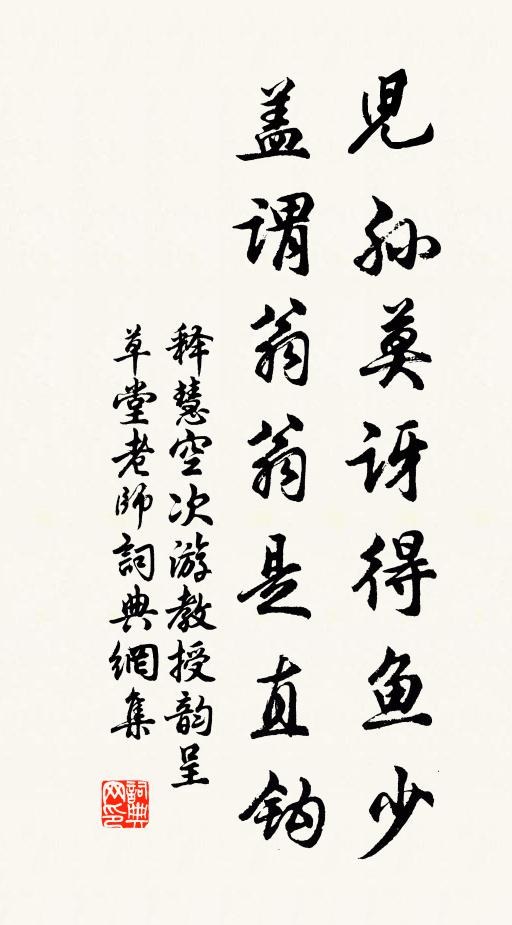 児孙莫讶得鱼少
盖谓翁翁是直钩
释慧空次游教授韵呈
草堂老師詞典網集
詞典网印